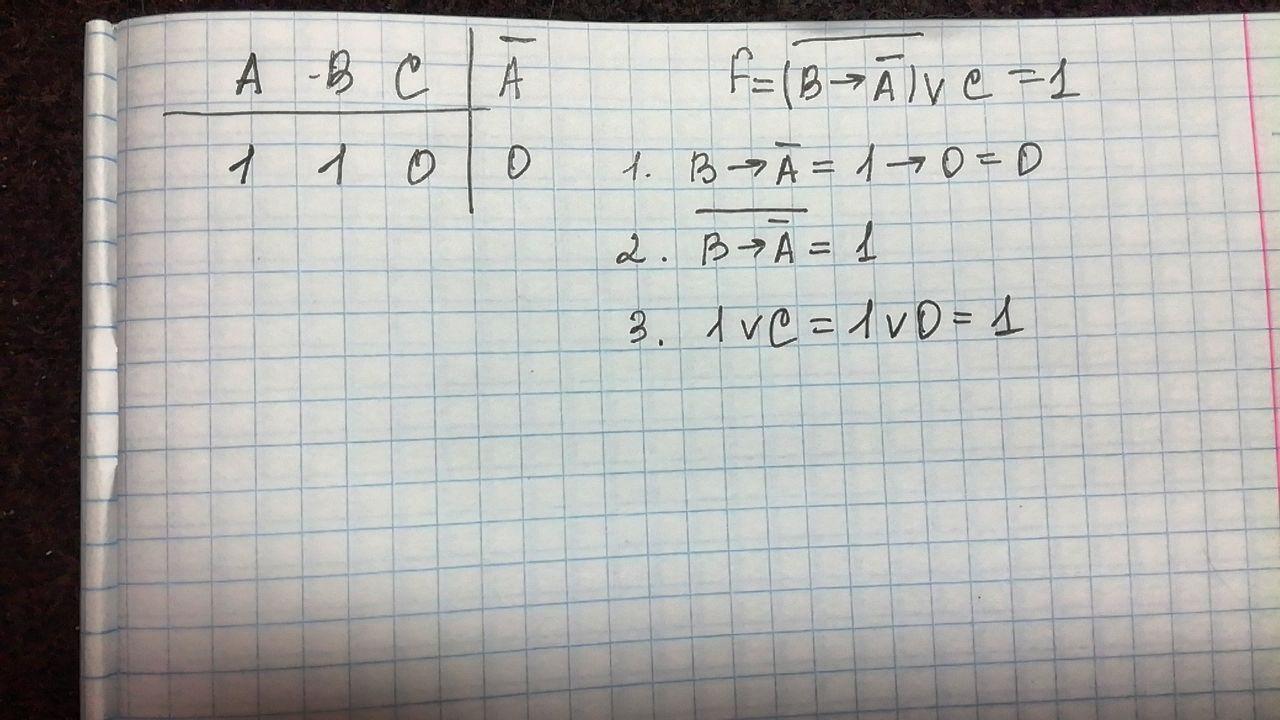 A B C | A̅
1 1 0 | 0
f=(B̅ ̅→̅ ̅A̅̅)∨C=1
1. B→A̅=1→0=0
2. B̅ ̅→̅ ̅A̅̅=1
3. 1∨C=1∨0=1